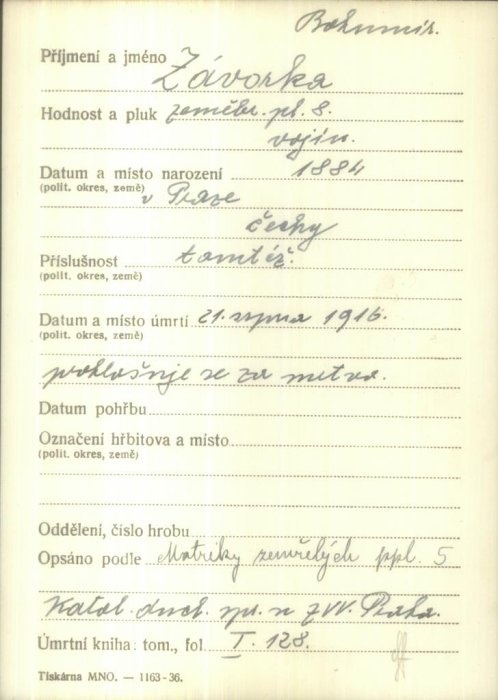 Bohumír.
Příjmení a jméno Závorka
Hodnost a pluk zeměbr. pl. 8.
vojín.
Datum a místo narození 1884
(polit. okres, země) v Praze
čechy
Příslušnost tamtéž.
(polit. okres, země)
Datum a místo úmrtí 21. srpna 1916.
(polit. okres, země)
pohlašuje se za mrtva.
Datum pohřbu
Označení hřbitova a místo
(polit. okres, země)
Oddělení, číslo hrobu
Opsáno podle Matriky zemřelých ppl. 5
Katol. duch. spr. n ZVV. Praha.
Úmrtní kniha: tom., fol. I. 128.
Tiskárna MNO. — 1163-36.